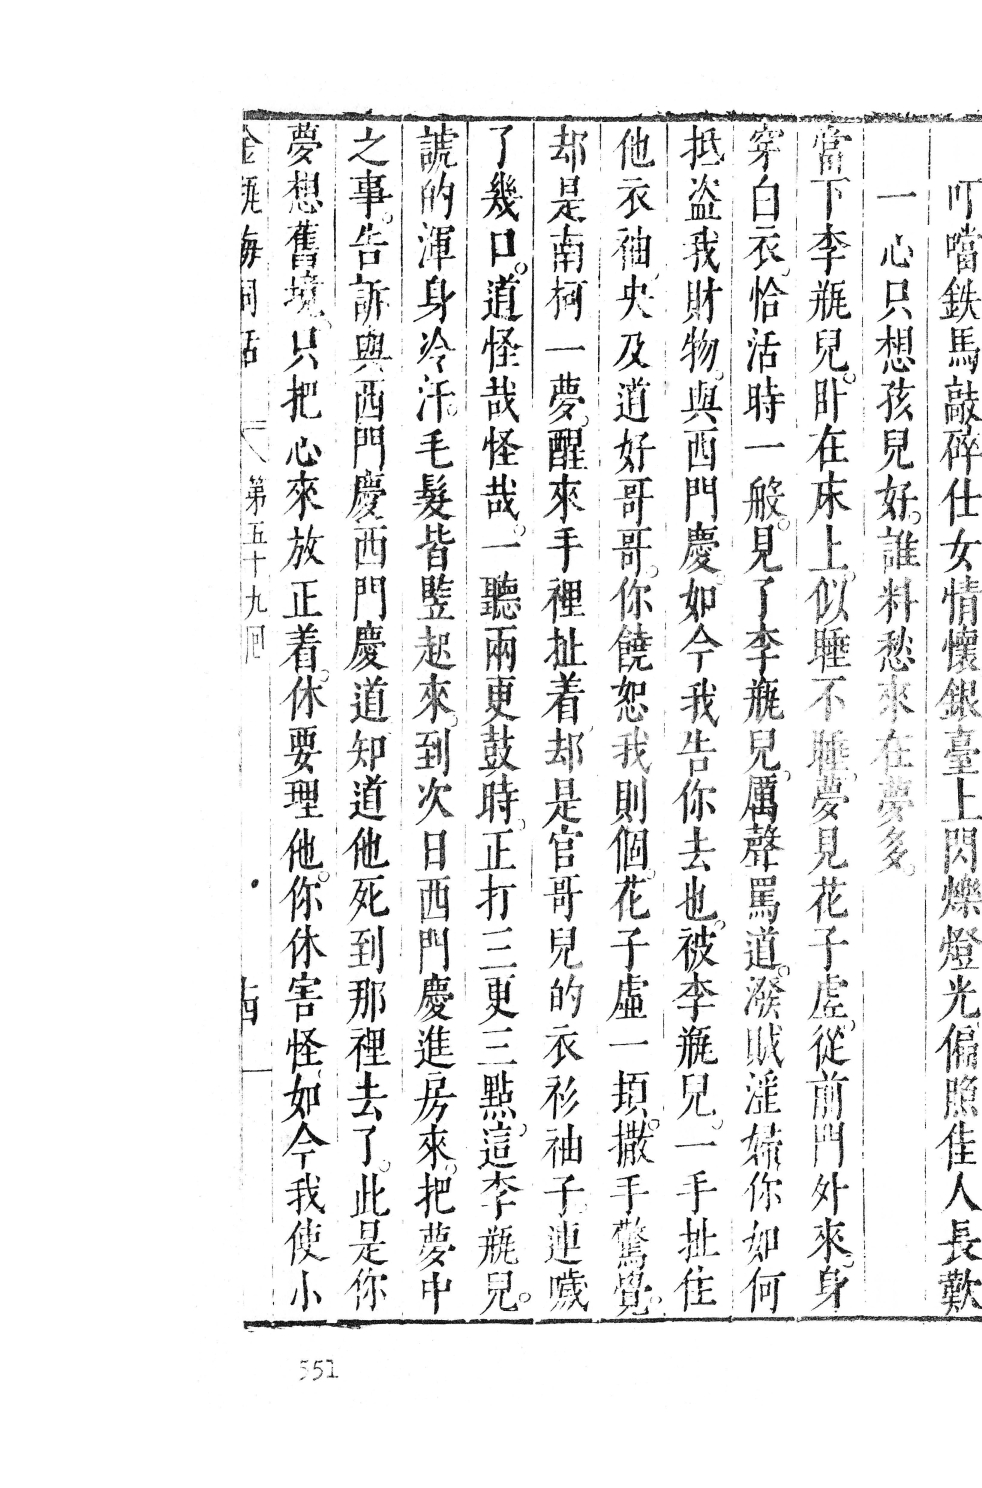 叮噹鉄馬敲碎仕女情懷銀臺上閃爍燈光偏照佳人長歎
一心只想孩兒好。誰料愁來在夢多。
當下李瓶兒。卧在床上。似睡不睡。夢見花子虛。從前門外來。身
穿白衣。恰活時一般。見了李瓶兒。厲聲罵道。潑賊淫婦你如何
抵盗我財物。與西門慶。如今我告你去也。被李瓶兒。一手扯住
他衣袖。央及道。好哥哥。你饒恕我則個。花子虛一頓。撒手驚覺。
却是南柯一夢。醒來手裡扯着。却是官哥兒的衣衫袖子。連噦
了幾口。道怪哉怪哉。一聽兩更鼓時。正打三更三點。這李瓶兒。
諕的渾身冷汗。毛髮皆竪起來。到次日西門慶進房來。把夢中
之事。告訴與西門慶西門慶道知道他死到那裡去了。此是你
夢想舊境。只把心來放正着。休要理他。你休害怪。如今我使小
金瓶梅詞話 第五十九回
551